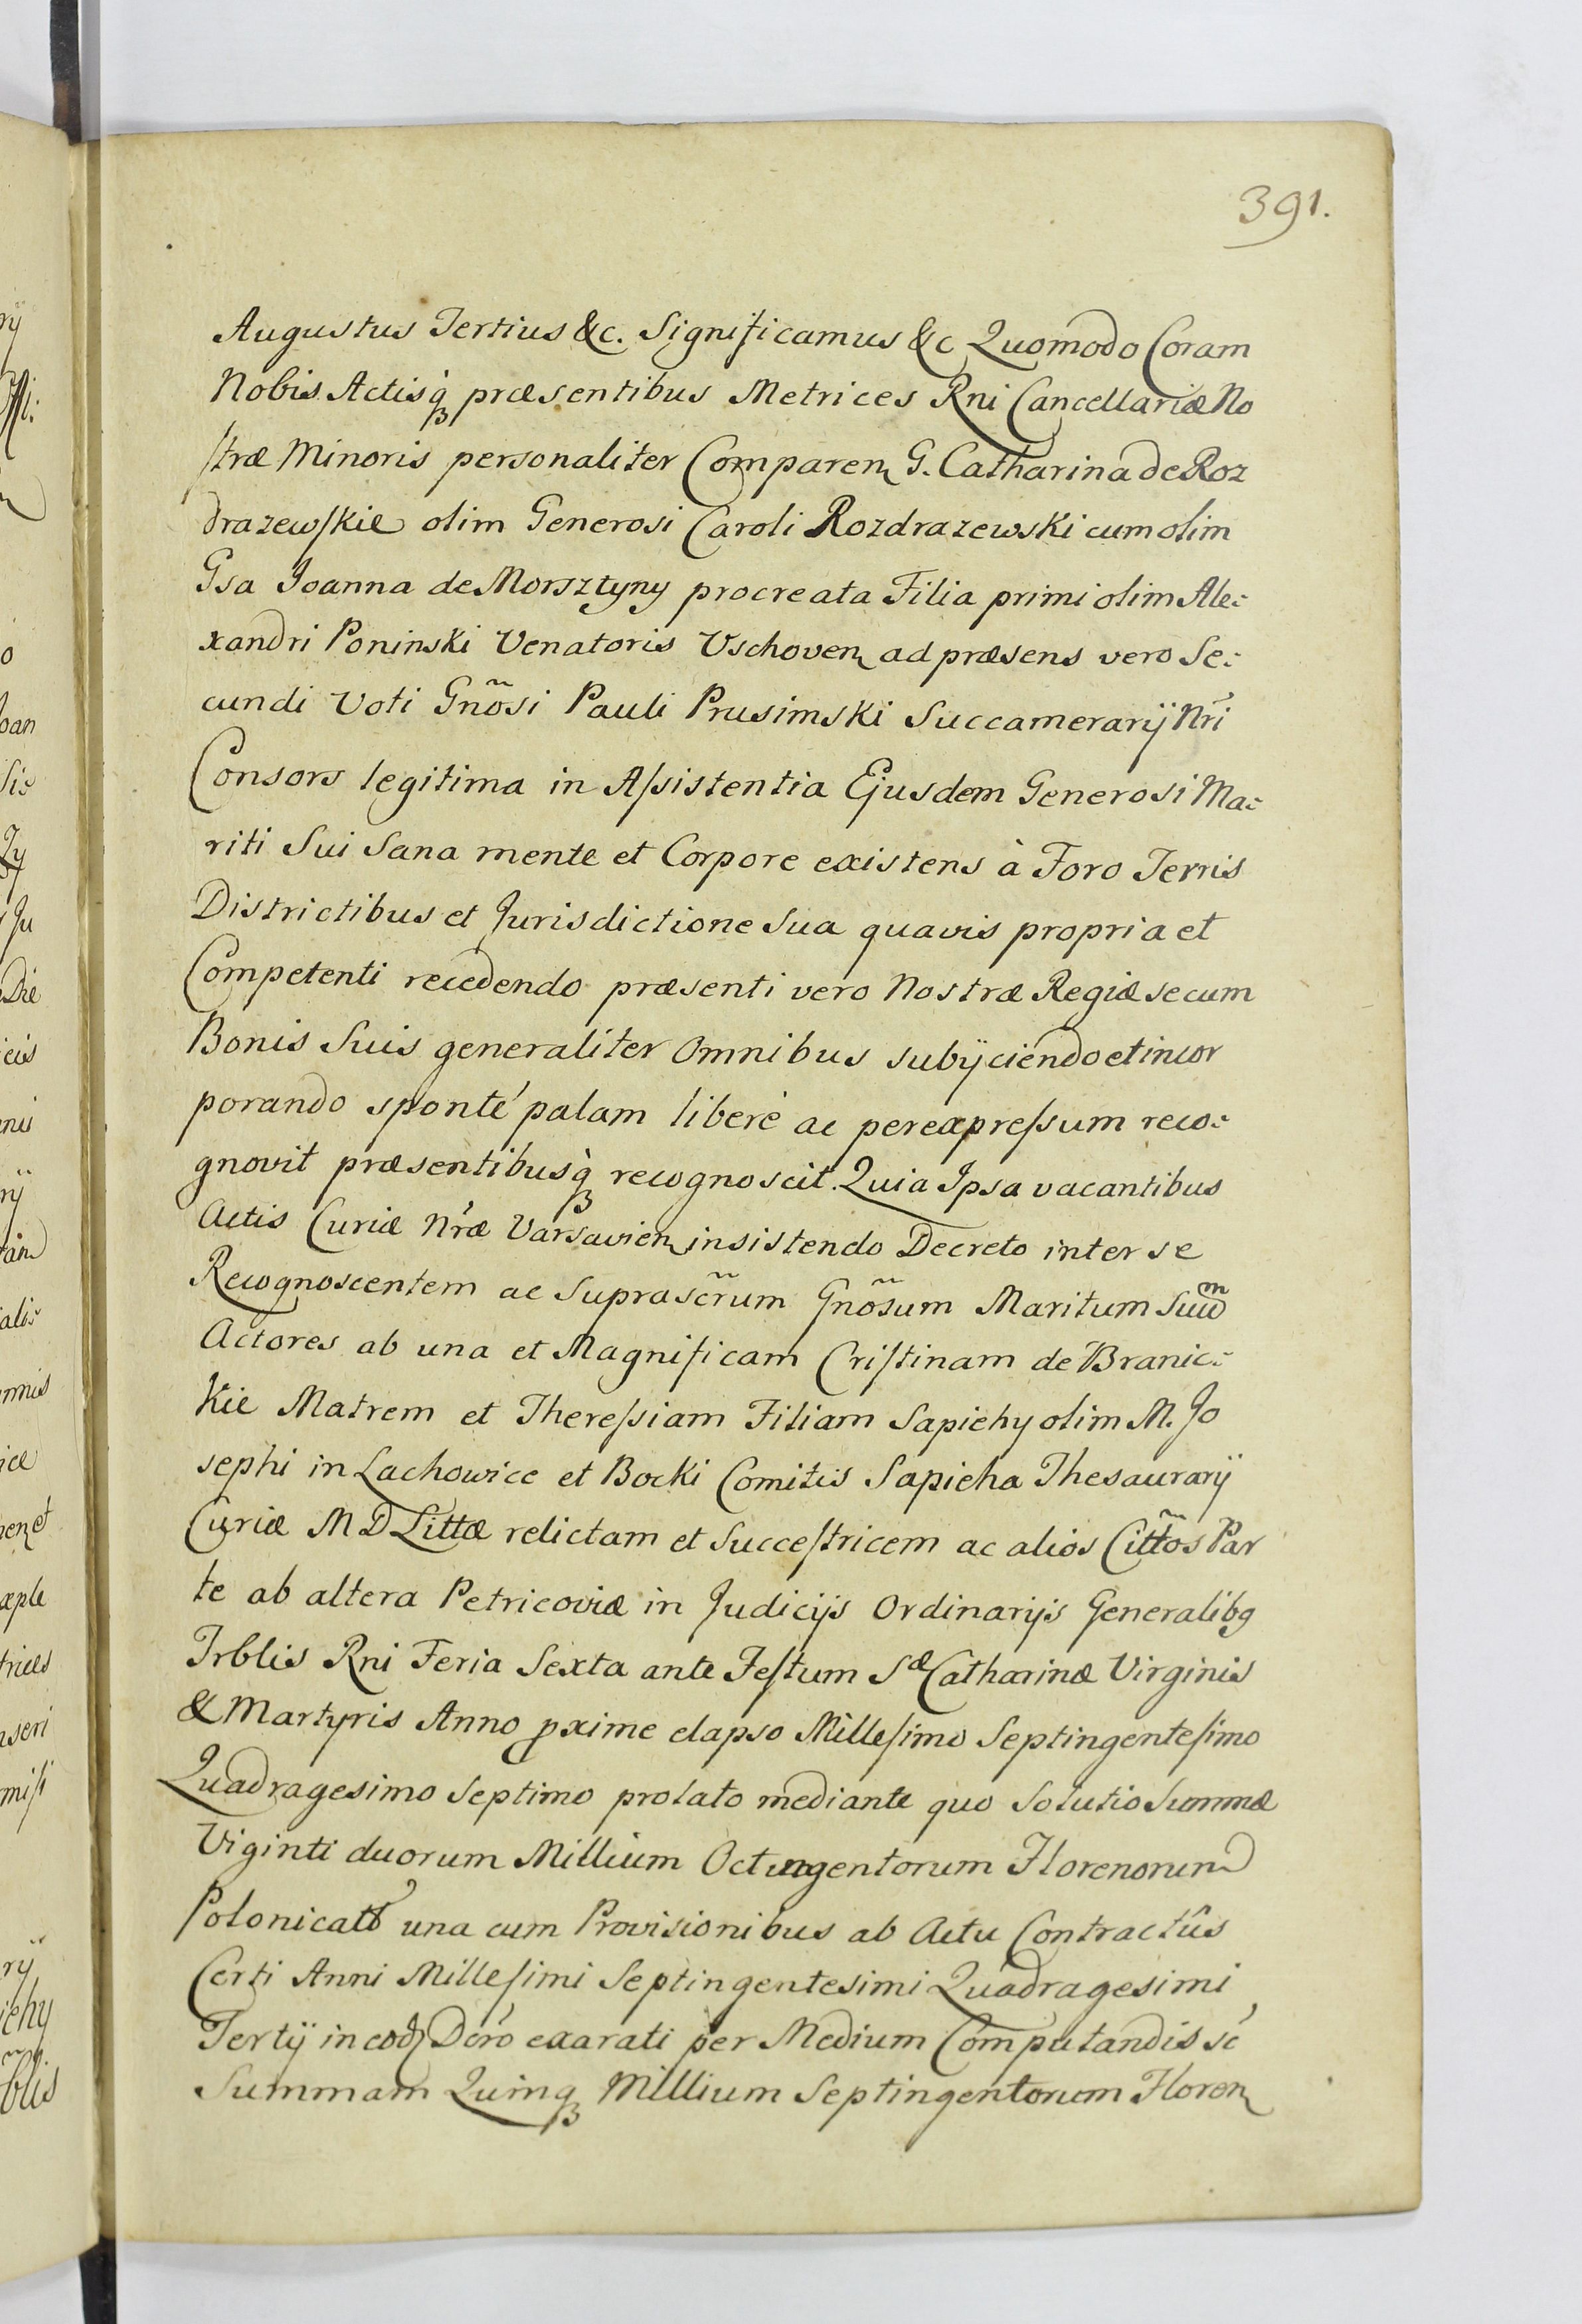 391.
Augustus Tertius &c. Significamus &c Quomodo Coram
Nobis Actisq₃ præsentibus Metrices Rni Cancellariæ No
stræ Minoris personaliter Comparen G. Catharina de Roz
drazewskie olim Generosi Caroli Rozdrazewski cum olim
Gsa Joanna de Morsztyny procreata Filia primi olim Ale:
xandri Poninski Venatoris Vschoven ad præsens vero Se:
cundi Voti Gnõsi Pauli Prusimski Succamerarij Nri
Consors legitima in Assistentia Ejusdem Generosi Ma:
riti Sui Sana mente et Corpore existens à Foro Terris
Districtibus et Jurisdictione Sua quavis propria et
Competenti recedendo præsenti vero Nostræ Regiæ se cum
Bonis Suis generaliter Omnibus subijciendo et incor
porando sponté palam liberè ac per expressum reco:
gnovit præsentibusq₃ recognoscit. Quia Ipsa vacantibus
Actis Curiæ Nræ Varsavien insistendo Decreto inter se
Recognoscentem ac Suprascr̃um Gnõsum Maritum Suum
Actores ab una et Magnificam Cristinam de Branic:
kie Matrem et Theressiam Filiam Sapiehy olim M. Jo
sephi in Lachowice et Bocki Comitis Sapieha Thesaurarij
Curiæ M D Littæ relictam et Succestricem ac alios Cittõs Par
te ab altera Petricoviæ in Judicijs Ordinarijs Generalibg
Trblis Rni Feria Sexta ante Festum Sæ Catharinæ Virginis
& Martyris Anno pxime elapso Millesimo Septingentesimo
Quadragesimo Septimo prolato mediante quo Solutio Summæ
Viginti duorum Millium Octingentorum Florenorum
Polonicall una cum Provisionibus ab Actu Contractûs
Certi Anni Millesimi Septingentesimi Quadragesimi
Tertij in eod Dcro exarati per Medium Computandis sc
Summam Quinq₃ Millium Septingentorum Floren